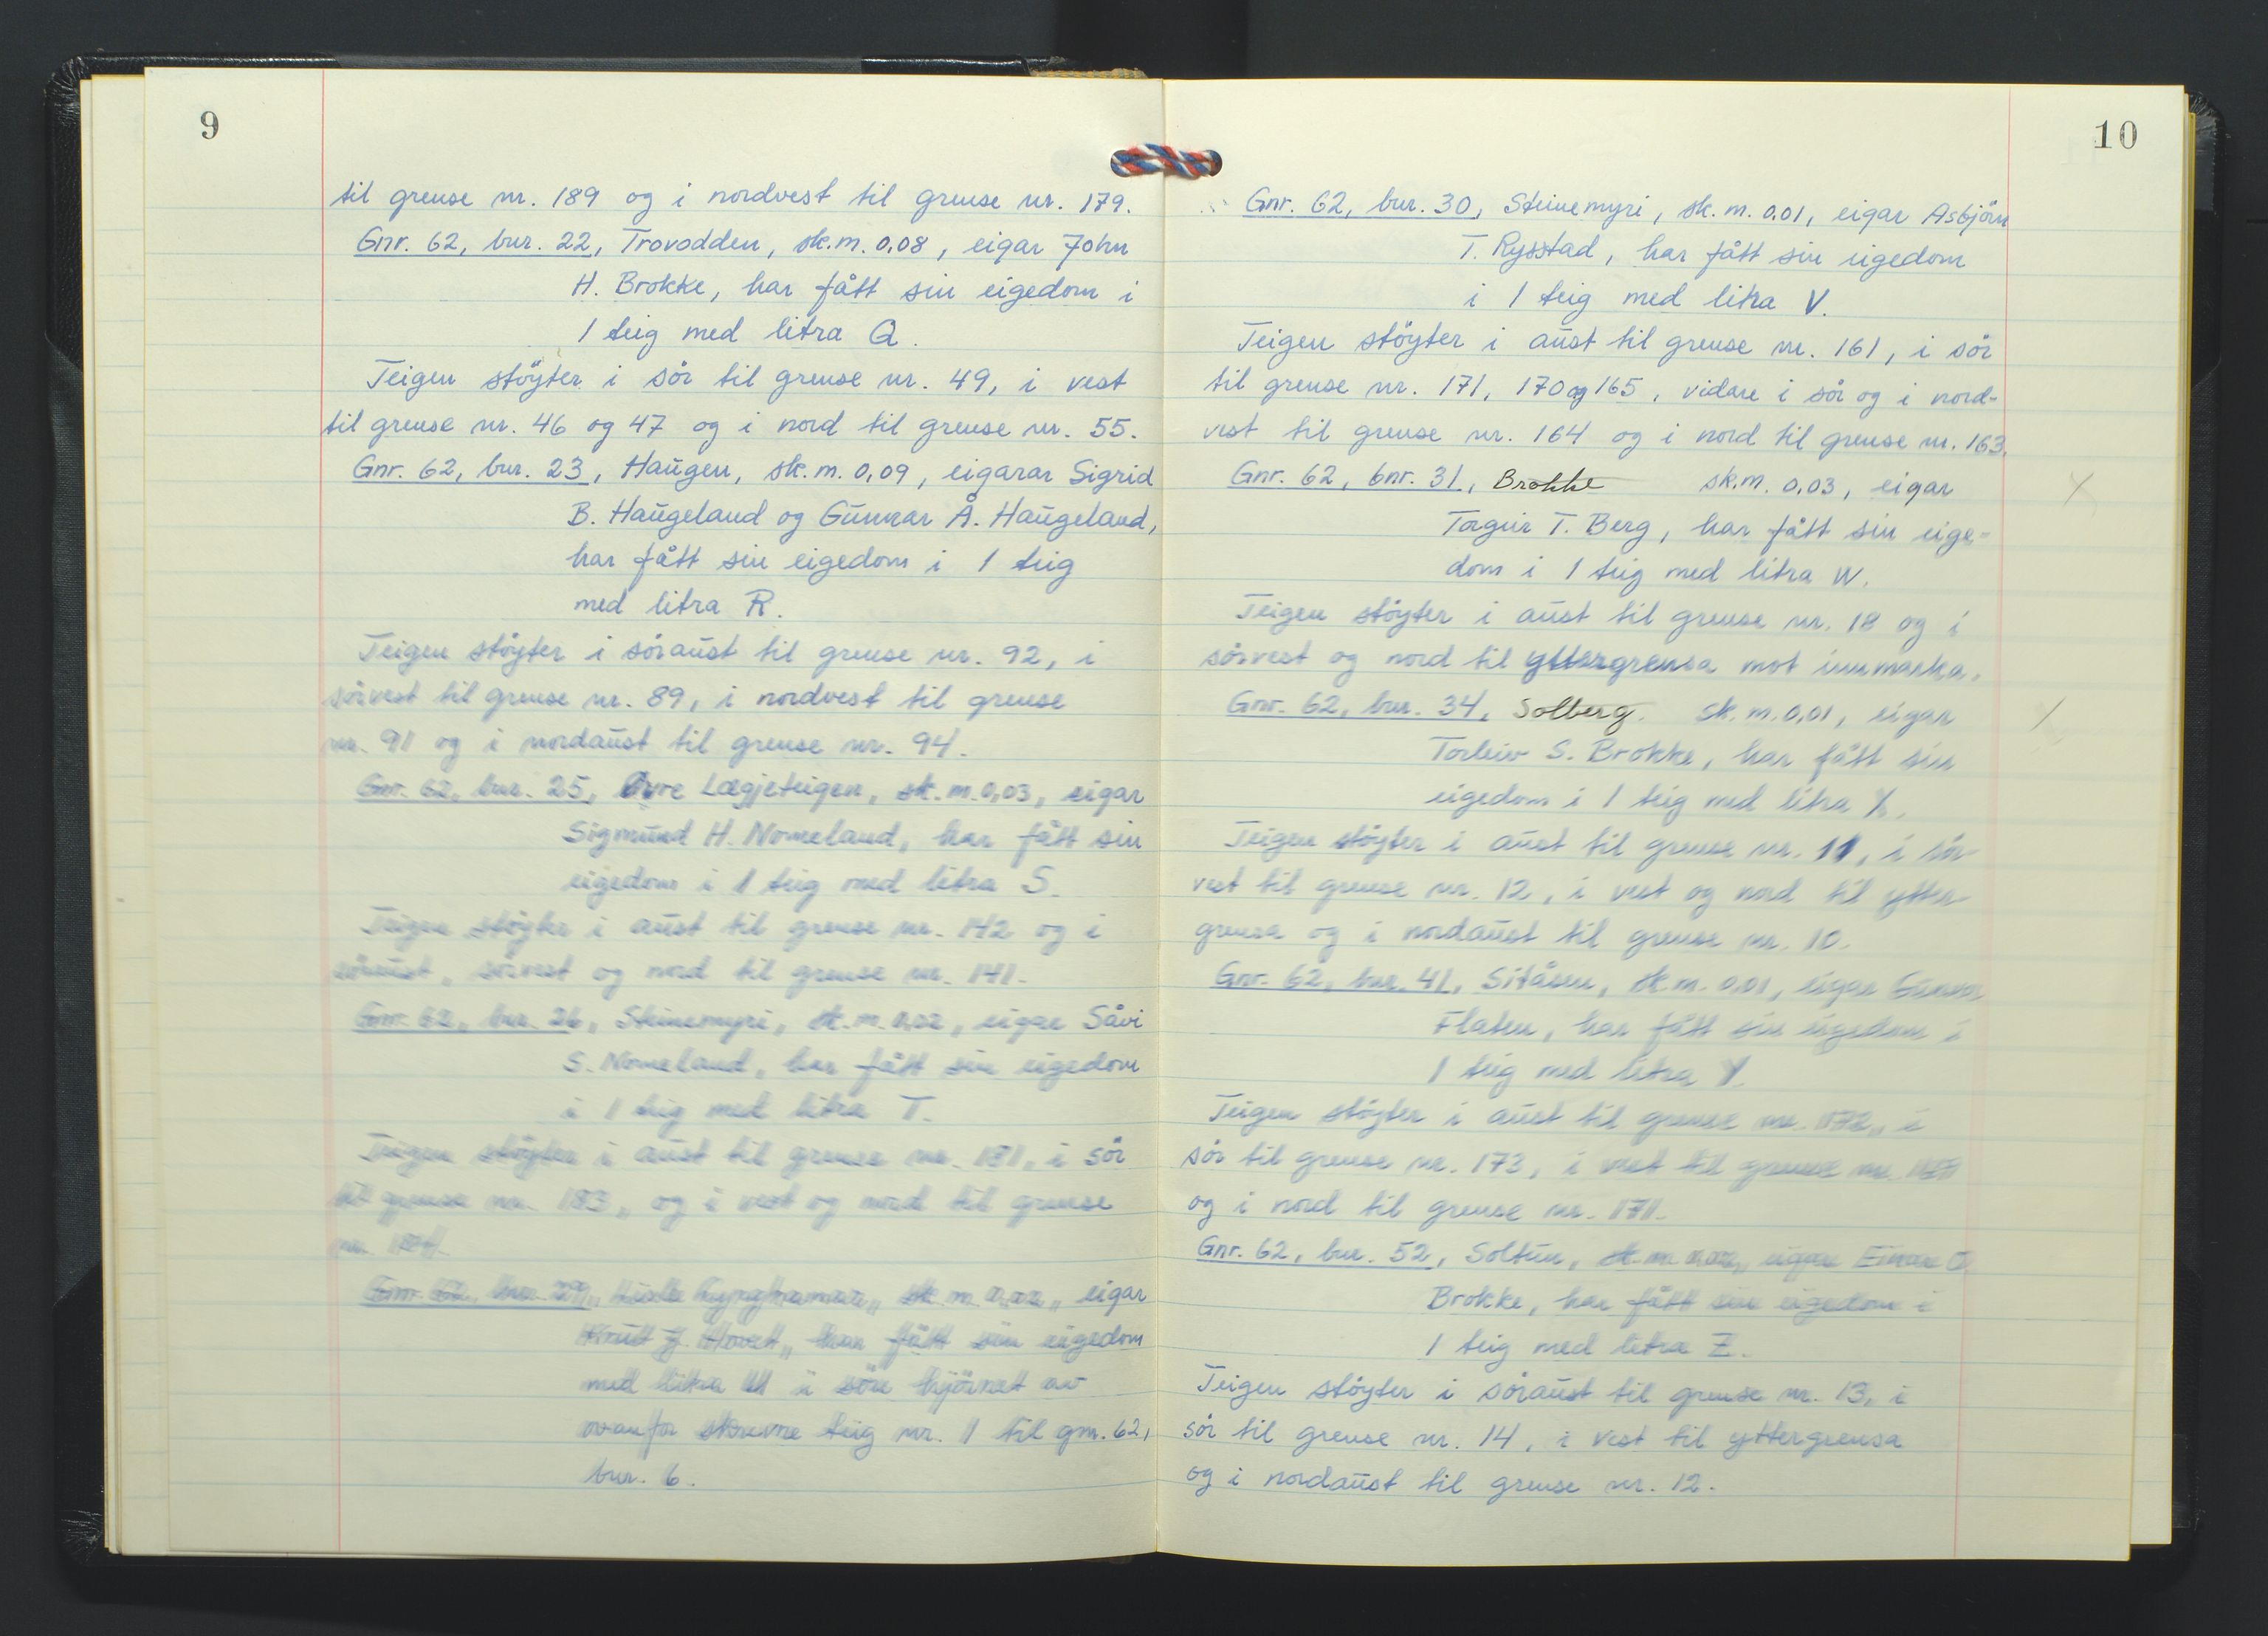 9
til grense nr. 189 og i nordvest til grense nr. 179.
Gnr. 62, bnr. 22, Trovodden, sk.m. 0,08, eigar John
H. Brokke, har fått sin eigedom i
1 teig med litra Q.
Teigen stöyter i sör til grense nr. 49, i vest
til grense nr. 46 og 47 og i nord til grense nr. 55.
Gnr. 62, bnr. 23, Haugen, sk.m. 0,09, eigarar Sigrid
B. Haugeland og Gunnar Å. Haugeland,
har fått sin eigedom i 1 teig
med litra R.
Teigen stöyter i söraust til grense nr. 92, i
sörvest til grense nr. 89, i nordvest til grense
nr. 91 og i nordaust til grense nr. 94.
Gnr. 62, bnr. 25, Övre Lægjeteigen, sk.m. 0,03, eigar
Sigmund H. Nomeland, har fått sin
eigedom i 1 teig med litra S.
Teigen stöyter i aust til grense nr. 142 og i
söraust, sörvest og nord til grense nr. 141.
Gnr. 62, bnr. 26, Steinemyri, sk.m. 0,02, eigar Såvi
S. Nomeland, har fått sin eigedom
i 1 teig med litra T.
Teigen stöyter i aust til grense nr. 181, i sör
til grense nr. 183, og i vest og nord til grense
nr.
Gnr. 62, bnr. 29, sk.m. 0,02, eigar
har fått sin eigedom
med litra U i söre hjörnet av
ovanfor skrevne teig nr. 1 til gnr. 62,
bnr. 6.
10
Gnr. 62, bnr. 30, Steinemyri, sk.m. 0,01, eigar Asbjörn
T. Rysstad, har fått sin eigedom
i 1 teig med litra V.
Teigen stöyter i aust til grense nr. 161, i sör
til grense nr. 171, 170 og 165, vidare i sör og i nord-
vest til grense nr. 164 og i nord til grense nr. 163.
Gnr. 62, bnr. 31, Brokke sk.m. 0,03, eigar
Torgeir T. Berg, har fått sin eige-
dom i 1 teig med litra W.
Teigen stöyter i aust til grense nr. 18 og i
sörvest og nord til yttergrensa mot innmarka.
Gnr. 62, bnr. 34, Solberg. sk.m. 0,01, eigar
Torleiv S. Brokke, har fått sin
eigedom i 1 teig med litra X.
Teigen stöyter i aust til grense nr. 11, i sör-
vest til grense nr. 12, i vest og nord til ytter-
grensa og i nordaust til grense nr. 10.
Gnr. 62, bnr. 41, Sitåsen, sk.m. 0,01, eigar Gunnar
Flaten, har fått sin eigedom i
1 teig med litra Y.
Teigen stöyter i aust til grense nr. 172, i
sör til grense nr. 173, i vest til grense nr.
og i nord til grense nr. 171.
Gnr. 62, bnr. 52, Soltun, sk.m. 0,02, eigar Einar O.
Brokke, har fått sin eigedom i
1 teig med litra Z.
Teigen stöyter i söraust til grense nr. 13, i
sör til grense nr. 14, i vest til yttergrensa
og i nordaust til grense nr. 12.